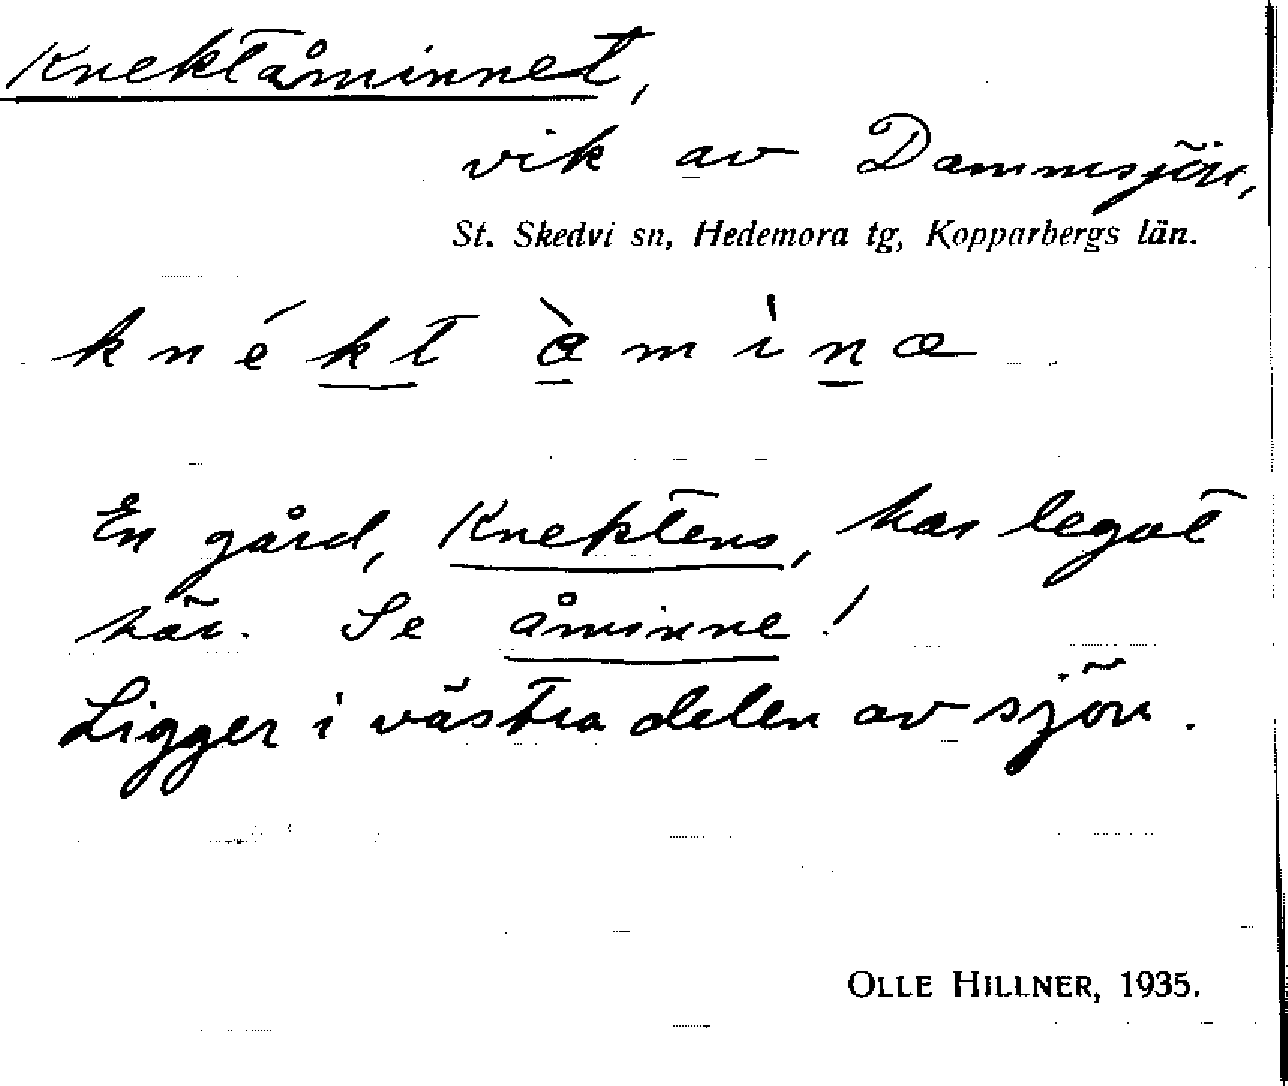 Knektåminnet,
vik av Dammsjön,
St. Skedvi sn, Hedemora tg, Kopparbergs län.
En gård, Knektens, har legat
här. Se åminne!
Ligger i västra delen av sjön.
OLLE HILLNER, 1935.